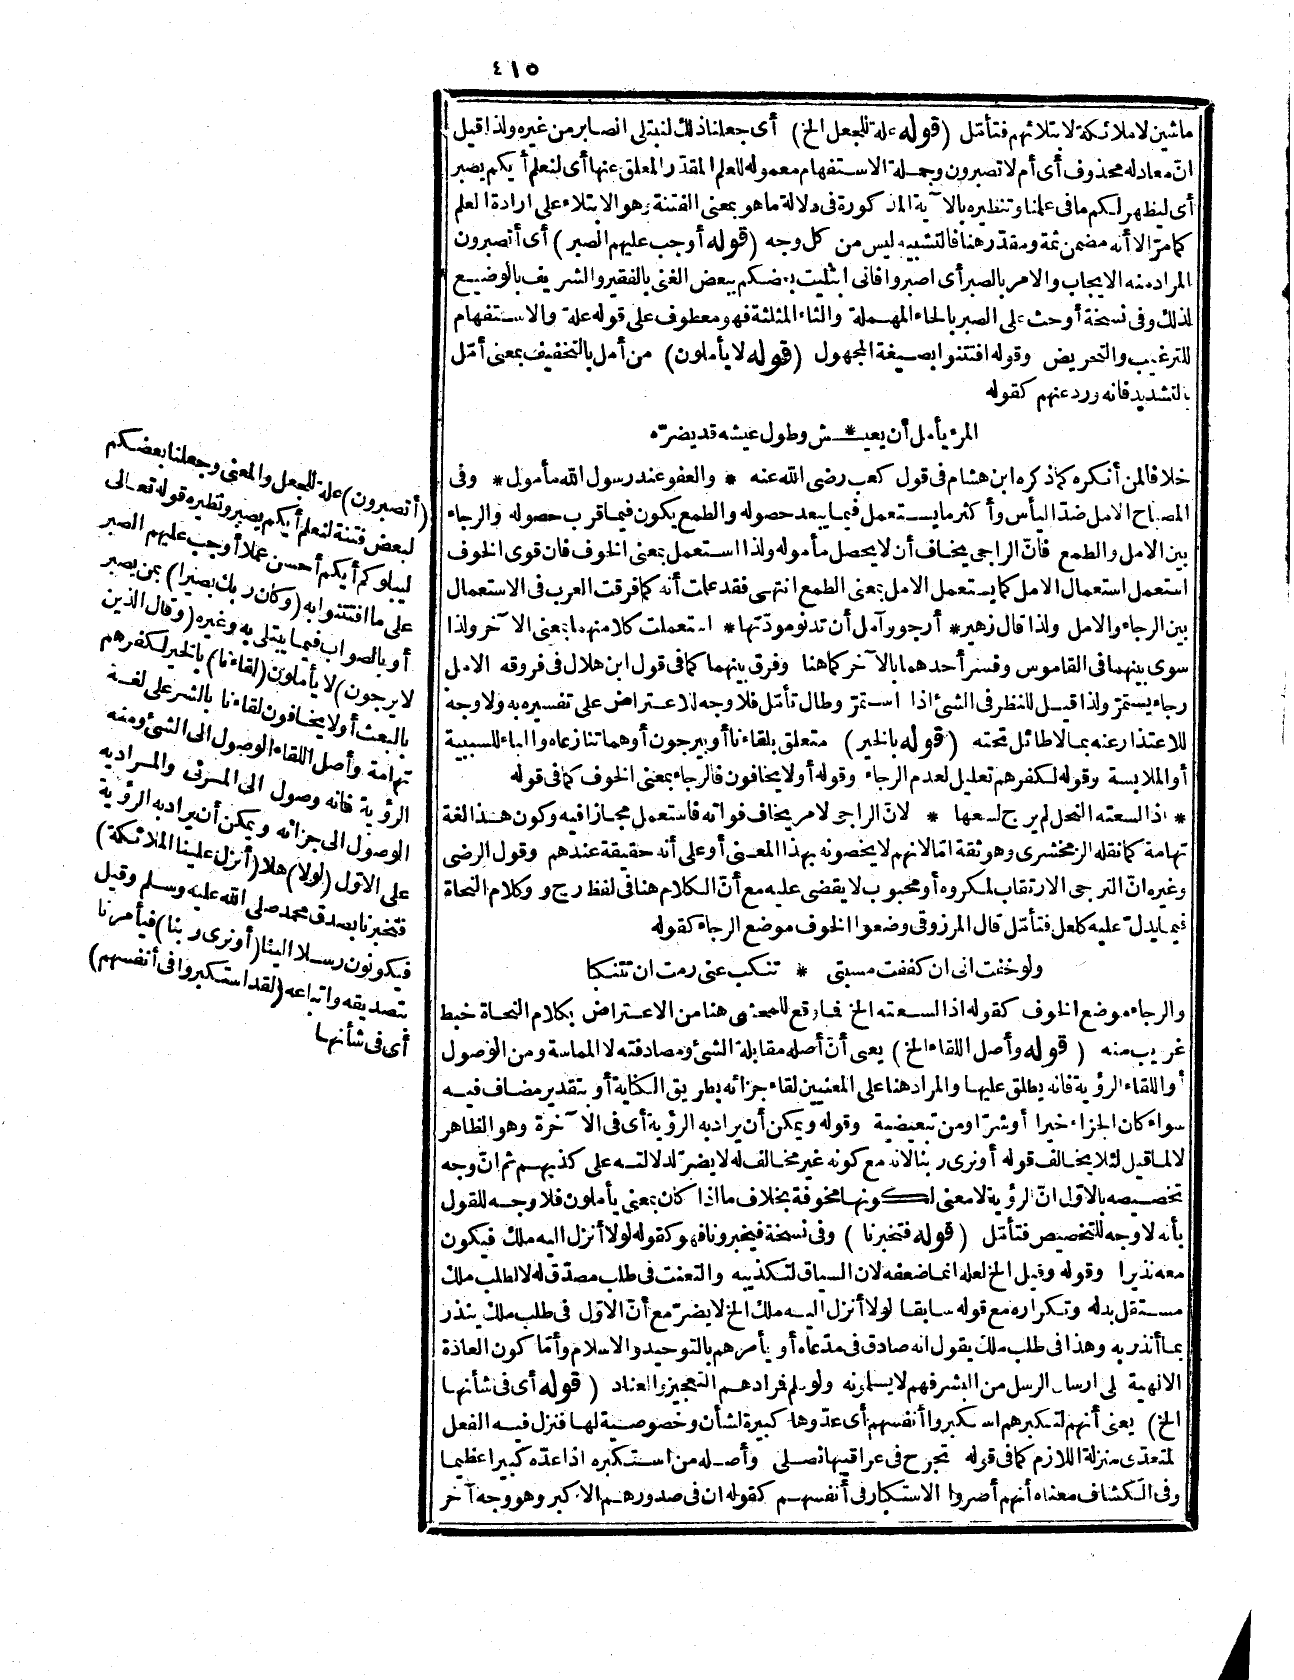 ٤١٥
ماشين لا ملائكة لابتلائهم فتأمّل (قوله علة للجعل الخ) أى جعلنا ذلك لنبتلى الصابر من غيره ولذا قيل
انّ معادله محذوف أى أم لا تصبرون وجملة الاستفهام معموله للعلم المقدّر المعلق عنها أى لنعلم أيكم يصبر
أى ليظهر لكم ما فى علمنا وتنظيره بالآية المذكورة فى دلالة ما هو بمعنى الفتنة وهو الابتلاء على ارادة العلم
كما مرّ الا أنه مضمن ثمة ومقدّر هنا فالتشبيه ليس من كل وجه (قوله أوجب عليهم الصبر) أى أتصبرون
المراد منه الايجاب والامر بالصبر أى اصبروا فانى ابتليت بعضكم ببعض الغنى بالفقير والشريف بالوضيع
لذلك وفى نسخة أوحث على الصبر بالحاء المهملة والثاء المثلثة فهو معطوف على قوله علة والاستفهام
للترغيب والتحريض وقوله افتتنوا بصيغة المجهول (قوله لا يأملون) من أمل بالتخفيف بمعنى أمّل
بالتشديد فانه ورد عنهم كقوله
المرء يأمل أن يعيـ * ـش وطول عيشه قد يضرّه
خلافا لمن أنكره كما ذكره ابن هشام فى قول كعب رضى الله عنه * والعفو عند رسول الله مأمول * وفى
المصباح الامل ضدّ اليأس وأكثر ما يستعمل فيما يبعد حصوله والطمع يكون فيما قرب حصوله والرجاء
بين الامل والطمع فانّ الراجى يخاف أن لا يحصل مأموله ولذا استعمل بمعنى الخوف فان قوى الخوف
استعمل استعمال الامل كما يستعمل الامل بمعنى الطمع انتهى فقد علمت أنه كما فرقت العرب فى الاستعمال
بين الرجاء والامل ولذا قال زهير * أرجو وآمل أن تدنو مودّتها * استعملت كلا منهما بمعنى الآخر ولذا
سوى بينهما فى القاموس وفسر أحدهما بالآخر كما هنا وفرق بينهما كما فى قول ابن هلال فى فروقه الامل
رجاء يستمرّ ولذا قيل للنظر فى الشئ اذا استمرّ وطال تأمّل فلا وجه للاعتراض على تفسيره به ولا وجه
للاعتذار عنه بما لا طائل تحته (قوله بالخير) متعلق بلقاءنا أو بيرجون أو هما تنازعاه والباء للسببية
أو الملابسة وقوله لكفرهم تعليل لعدم الرجاء وقوله أو لا يخافون فالرجاء بمعنى الخوف كما فى قوله
* اذا لسعته النحل لم يرج لسعها * لانّ الراجى لامر يخاف فواته فاستعمل مجازا فيه وكون هذا لغة
تهامة كما نقله الزمخشرى وهو ثقة امّا لانهم لا يخصونه بهذا المعنى أو على أنه حقيقة عندهم وقول الرضى
وغيره انّ الترجى الارتقاب لمكروه أو محبوب لا يقضى عليه مع أنّ الكلام هنا فى لفظ رج و وكلام النحاة
فيما يدلّ عليه كلعل فتأمّل قال المرزوقى وضعوا الخوف موضع الرجاء كقوله
ولو خفت انى ان كففت مسبتى * تنكب عنى رمت ان تتنكبا
والرجاء موضع الخوف كقوله اذا لسعته الخ فما وقع للمحشى هنا من الاعتراض بكلام النحاة خبط
غريب منه (قوله وأصل اللقاء الخ) يعنى أنّ أصله مقابلة الشئ ومصادفته لا المماسة ومن الوصول
أو اللقاء الرؤية فانه يطلق عليها والمراد هنا على المعنيين لقاء جزائه بطريق الكناية أو بتقدير مضاف فيه
سواء كان الجزاء خيرا أو شرّا ومن تبعيضية وقوله ويمكن أن يراد به الرؤية أى فى الآخرة وهو الظاهر
لا لما قيل لئلا يخالف قوله أو نرى ربنا لانه مع كونه غير مخالف له لا يضرّ لدلالته على كذبهم ثم انّ وجه
تخصيصه بالاوّل انّ الرؤية لا معنى لكونها مخوفة بخلاف ما اذا كان بمعنى يأملون فلا وجه للقول
بأنه لا وجه للتخصيص فتأمّل (قوله فتخبرنا) وفى نسخة فيخبرونا فهو كقوله لولا أنزل اليه ملك فيكون
معه نذيرا وقوله وقيل الخ لعله انما ضعفه لان السياق لتكذيبه والتعنت فى طلب مصدّق له لا لطلب ملك
مستقل بدله وتكراره مع قوله سابقا لولا أنزل اليه ملك الخ لا يضرّ مع أنّ الاوّل فى طلب ملك ينذر
بما أنذر به وهذا فى طلب ملك يقول انه صادق فى مدّعاه أو يأمرهم بالتوحيد والاسلام وأمّا كون العادة
الالهية على ارسال الرسل من البشر فهم لا يسلمونه ولو سلم فمرادهم التعجيز والعناد (قوله أى فى شأنها
الخ) يعنى أنهم لتكبرهم استكبروا أنفسهم أى عدّوها كبيرة لشأن وخصوصية لها فنزل فيه الفعل
المتعدّى منزلة اللازم كما فى قوله تجرح فى عراقيبها نصلى وأصله من استكبره اذا عدّه كبيرا عظيما
وفى الكشاف معناه أنهم أضمروا الاستكبار فى أنفسهم كقوله ان فى صدورهم الا كبر وهو وجه آخر
(أتصبرون) علة للجعل والمعنى وجعلنا بعضكم
لبعض فتنة لنعلم أيكم يصبر ونظيره قوله تعالى
ليبلوكم أيكم أحسن عملا أوجب عليهم الصبر
على ما افتتنوا به (وكان ربك بصيرا) بمن يصبر
أو بالصواب فيما يبتلى به وغيره (وقال الذين
لا يرجون) لا يأملون (لقاءنا) بالخير لكفرهم
بالبعث أو لا يخافون لقاءنا بالشر على لغة
تهامة وأصل اللقاء الوصول الى الشئ ومنه
الرؤية فانه وصول الى المرئى والمراد به
الوصول الى جزائه ويمكن أن يراد به الرؤية
على الاوّل (لولا) هلا (أنزل علينا الملائكة)
فتخبرنا بصدق محمد صلى الله عليه وسلم وقيل
فيكونون رسلا الينا (أو نرى ربنا) فيأمرنا
بتصديقه واتباعه (لقد استكبروا فى أنفسهم)
أى فى شأنها